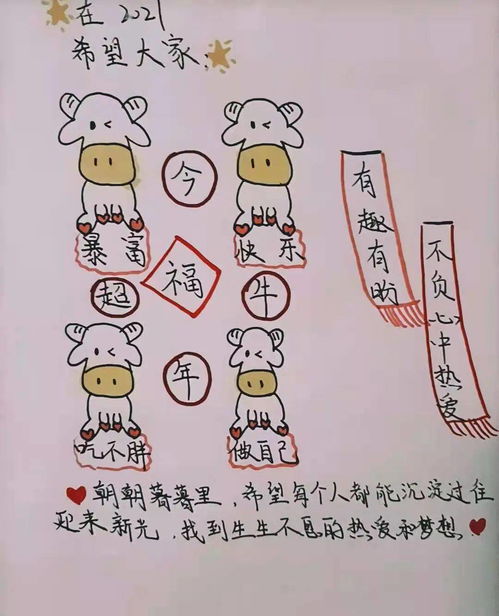 在2021
希望大家:
今
暴富
快乐
超
福
牛
年
吃不胖
做自己
有趣有盼
不负心中热爱
朝朝暮暮里,希望每个人都能沉淀过往
迎来新光,找到生生不息的热爱和梦想.